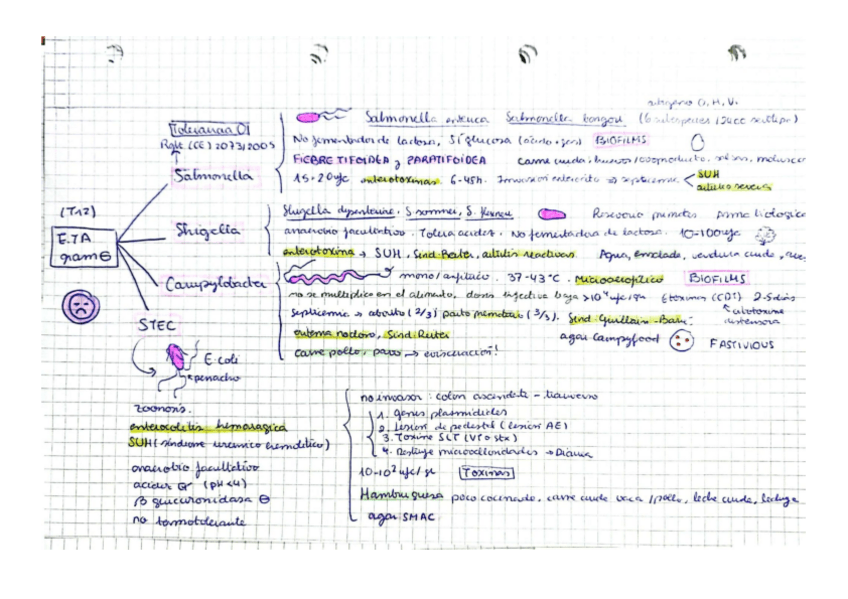 antígeno O, H, V.
Tolerancia 0!
Salmonella enterica Salmonella bongori (6 subespecies /
Rgto (CE) 2073/2005
No fermentador de lactosa, Sí glucosa (ácido + gas) BIOFILMS
FIEBRE TIFOIDEA y PARATIFOIDEA carne cruda, huevos/ovoproducto, salsas, molusco
Salmonella
15-20 ufc enterotoxinas 6-48h. Invasión enterocito → septicemia < SUH
artritis
(T12)
Shigella dysenteriae, S. sonnei, S. flexneri Reservorio primates Arma biológica
Shigella
anaerobio facultativo. Tolera acidez. No fermentadora de lactosa. 10-100 ufc
E.T.A
gram ⊖
enterotoxina → SUH, Sind. Reiter, artritis reactivas. Agua, ensalada, verdura cruda,
Campylobacter
mono/anfitrico. 37-43°C. Microaerofílico BIOFILMS
no se multiplica en el alimento, dosis infectiva baja >10⁴ ufc/gr 6 toxinas (CDT) 2-5 días
septicemia → aborto (2/3) parto prematuro (1/3). Sind. Guillain-Barré
citotoxina
distensora
STEC
eritema nodoso, Sind. Reiter
agar Campyfood FASTIDIOUS
carne pollo, pavo → evisceración!
E. coli
penacho
no invasor: colon ascendente - transverso
zoonosis.
1. Genes plasmídicos
enterocolitis hemorrágica
2. Lesión de pedestal (lesión AE)
SUH (síndrome urémico hemolítico)
3. Toxina SLT (VT o stx)
4. Destruye microvellosidades → Diarrea
anaerobio facultativo
10-10² ufc/gr Toxinas
acidez (pH<4)
β glucuronidasa ⊖
Hamburguesa poco cocinada, carne cruda vaca/pollo, leche cruda, lechuga
no termotolerante
agar SMAC